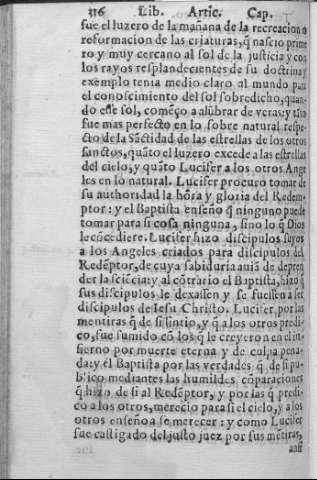 316 Lib. Artic. Cap.
fue el luzero de la mañana de la recreacion o
reformacion de las criaturas, q̃ nascio prime
ro y muy cercano al sol de la justicia y con
los rayos resplandecientes de su doctrina y
exemplo tenia medio claro al mundo para
el conoscimiento del sol sobredicho, quan-
do este sol, começo a alũbrar de veras: y assi
fue mas perfecto en lo sobre natural respe-
cto de la Sãctidad de las estrellas de los otros
sanctos, quãto el luzero excede a las estrellas
del cielo, y quãto Lucifer a los otros Ange
les en lo natural. Lucifer procuro tomar de
su authoridad la hõra y gloria del Redem-
ptor: y el Baptista enseño q̃ ninguno puede
tomar para si cosa ninguna, sino lo q̃ Dios
le cõcediere. Lucifer hizo discipulos suyos
a los Angeles criados para discipulos del
Redẽptor, de cuya sabiduria auiã de depren
der la sciẽcia: y al cõtrario el Baptista, hizo q̃
sus discipulos le dexassen y se fuessen a ser
discipulos de Iesu Christo. Lucifer por las
mentiras q̃ de si sintio, y q̃ a los otros predi-
co, fue sumido cõ los q̃ le creyeron en el in-
fierno por muerte eterna y de culpa pena-
da: y el Baptista por las verdades q̃ de si pu-
blico mediantes las humildes cõparaciones
q̃ hizo de si al Redẽptor, y por las q̃ predi-
co a los otros, merecio para si el cielo, y a los
otros enseño a se merecer: y como Lucifer
fue castigado del justo juez por sus mẽtiras,